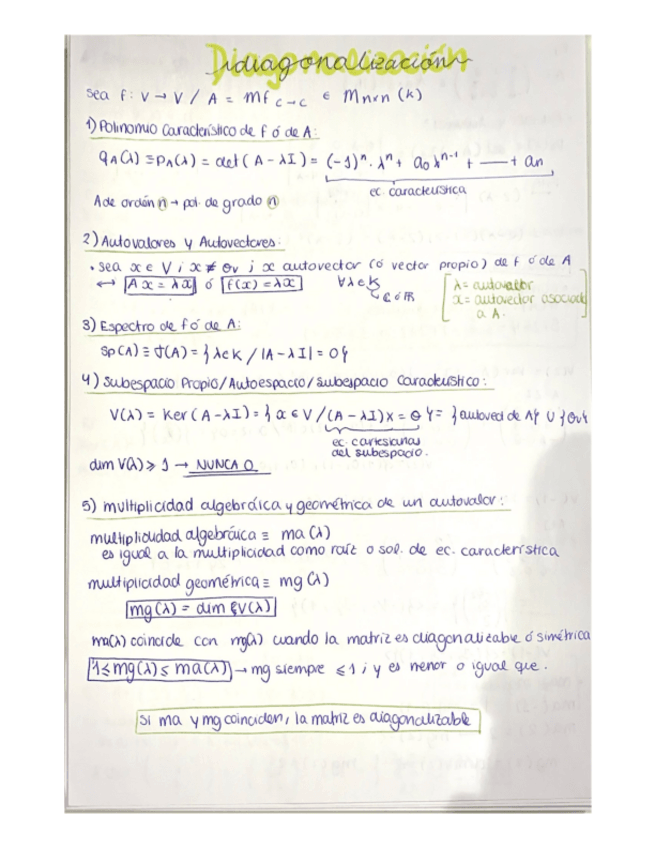 Diagonalización
Sea f: V → V / A = Mf C→C ∈ Mnxn (K)
1) Polinomio Característico de f ó de A:
qA(λ) ≡ PA(λ) = det (A - λI) = (-1)ⁿ · λⁿ + a₀ λⁿ⁻¹ + —— + an
ec. característica
A de orden n → pol. de grado n
2) Autovalores y Autovectores:
• sea x ∈ V ; x ≠ Θv ; x autovector (ó vector propio) de f ó de A
↔ Ax = λx ó f(x) = λx ∀λ∈K
C ó R
λ = autovalor
x = autovector asociad
a A.
3) Espectro de f ó de A:
Sp(A) ≡ σ(A) = { λ∈K / |A - λI| = 0 }
4) Subespacio Propio/Autoespacio/Subespacio Característico:
V(λ) = Ker (A - λI) = { x ∈ V / (A - λI)x = Θ } = { autovect de λ } ∪ { Θv
ec. cartesianas
del subespacio.
dim V(λ) ≥ 1 → NUNCA 0
5) multiplicidad algebráica y geométrica de un autovalor:
multiplicidad algebráica ≡ ma (λ)
es igual a la multiplicidad como raíz o sol. de ec. característica
multiplicidad geométrica ≡ mg (λ)
mg (λ) = dim {V(λ)
ma(λ) coincide con mg(λ) cuando la matriz es diagonalizable ó simétrica
1 ≤ mg(λ) ≤ ma(λ) → mg siempre ≤ 1 ; y es menor o igual que .
Si ma y mg coinciden, la matriz es diagonalizable